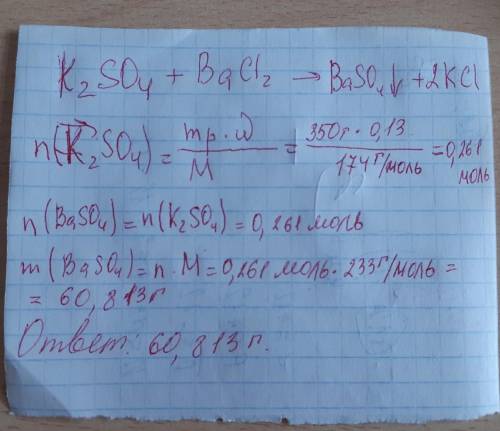 K₂SO₄ + BaCl₂ → BaSO₄↓ + 2KCl
n(K₂SO₄) = mр·ω / M = 350г · 0,13 / 174г/моль = 0,261 моль
n(BaSO₄) = n(K₂SO₄) = 0,261 моль
m(BaSO₄) = n · M = 0,261 моль · 233г/моль =
= 60,813г
Ответ: 60,813 г.